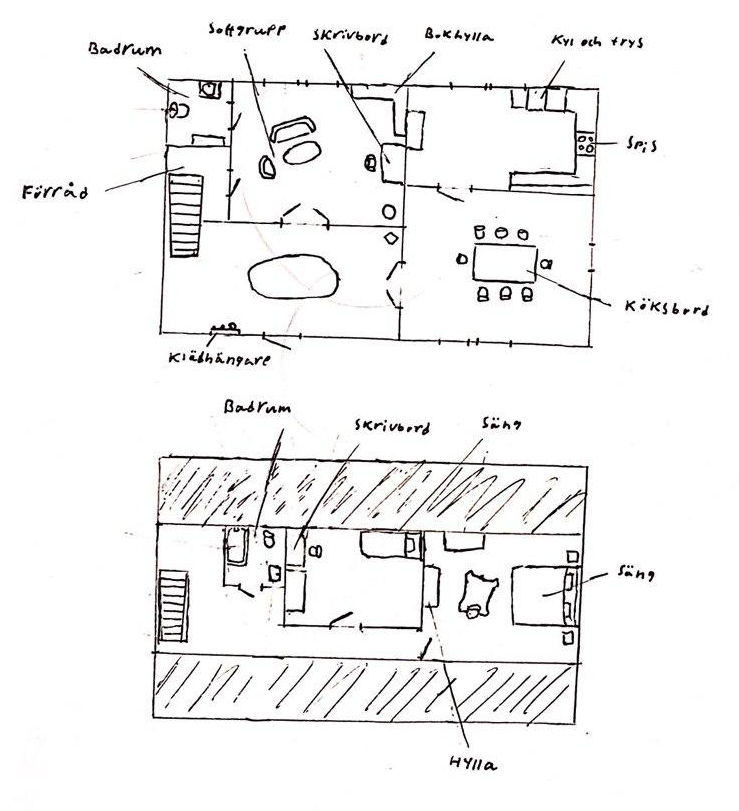 Badrum
Soffgrupp
Skrivbord
Bokhylla
Kyl och frys
Spis
Förråd
Köksbord
Klädhängare
Badrum
Skrivbord
Säng
Säng
Hylla